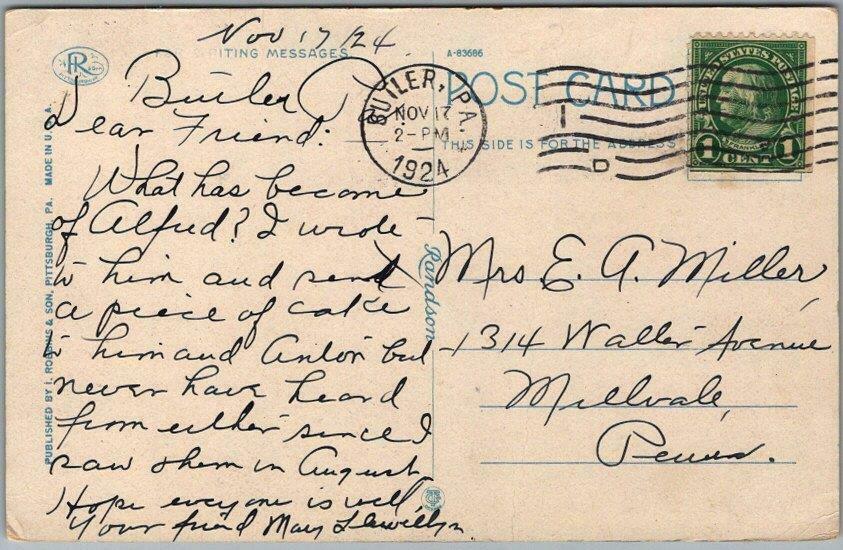 Nov 17/24
ITING MESSAGES
A-83686
POST CARD
THIS SIDE IS FOR THE ADDRESS
R
PITTSBURGH
PUBLISHED BY I. ROBBINS & SON, PITTSBURGH, PA. MADE IN U.S.A.
BUTLER, PA.
NOV 17
2-PM
1924
UNITED STATES POSTAGE
FRANKLIN
1 CENT 1
Butler P
Dear Friend:
What has become
of Alfred? I wrote
to him and send
a piece of cake
to him and Anton but
never have heard
from either since I
saw them in August
Hope everyone is well
Your friend Mary Llewellyn
Randson
Mrs. E. A. Miller,
1314 Walter Avenue
Millvale,
Penna.